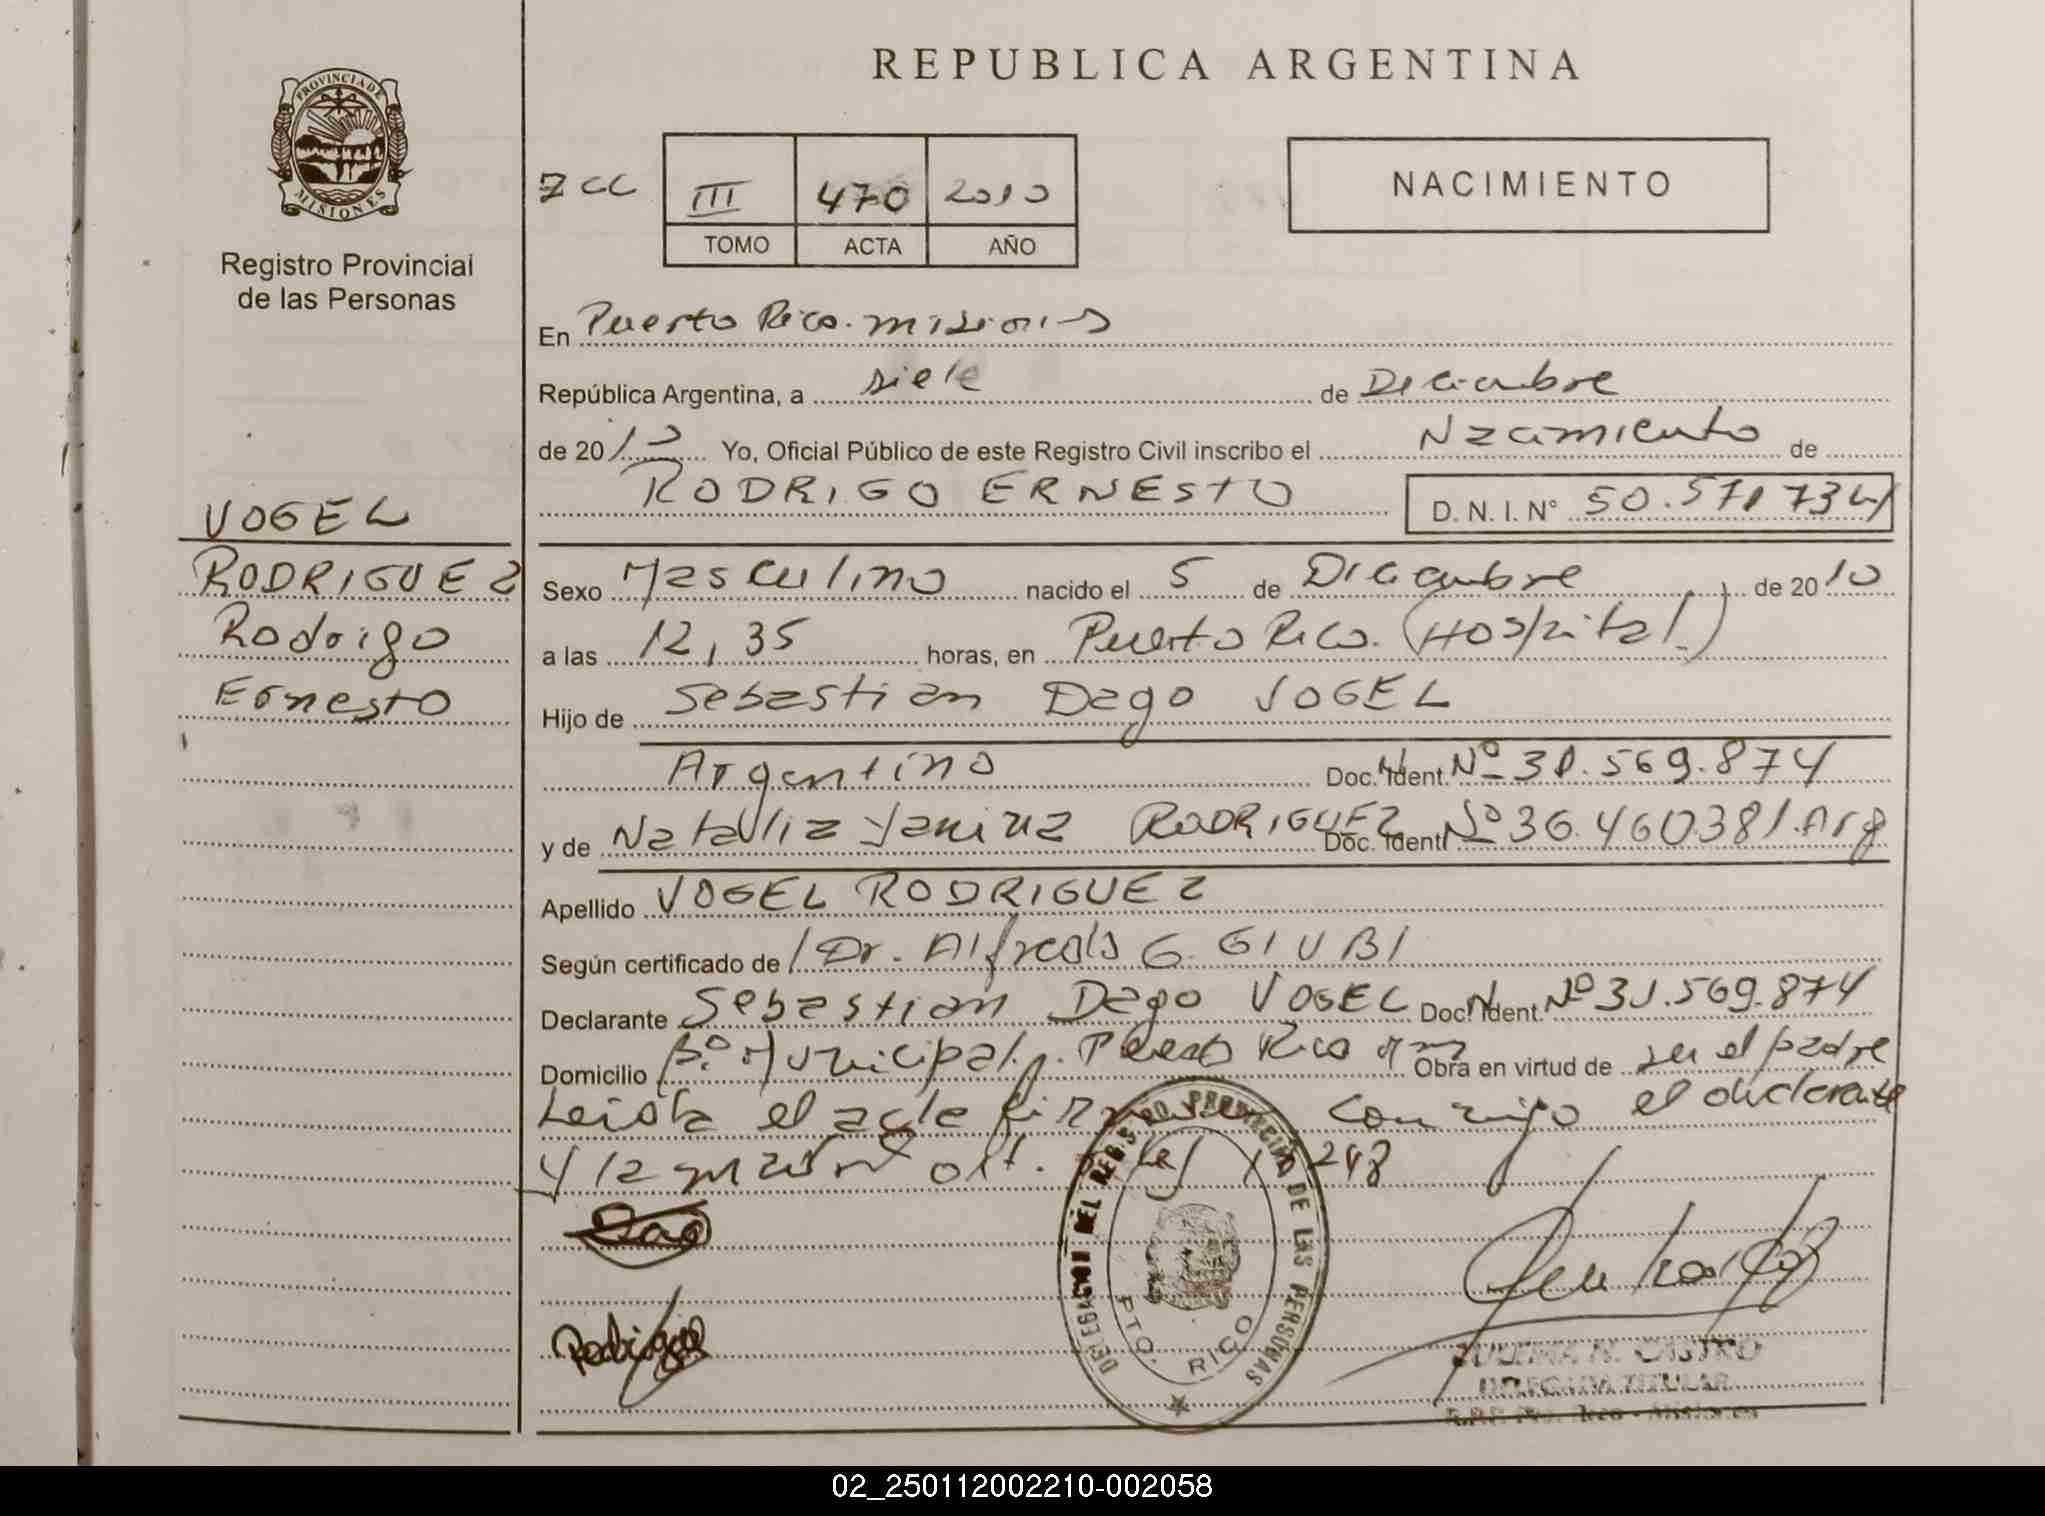 REPUBLICA ARGENTINA
PROVINCIA DE
MISIONES
Registro Provincial
de las Personas
7CC III 470 2010
TOMO ACTA AÑO
NACIMIENTO
En Puerto Rico. misiones
República Argentina, a siete de Diciembre
de 2010 Yo, Oficial Público de este Registro Civil inscribo el Nacimiento de
RODRIGO ERNESTO D. N. I. N° 50.571734
VOGEL
RODRIGUEZ
Rodrigo
Ernesto
Sexo Masculino nacido el 5 de Diciembre de 2010
a las 12,35 horas, en Puerto Rico. (Hospital.)
Hijo de Sebastian Dago VOGEL
Argentino Doc. Ident. Nº 31.569.874
y de Natalia Yanina RODRIGUEZ Doc. Ident Nº 36.460381.Arg
Apellido VOGEL RODRIGUEZ
Según certificado de Dr. Alfredo G. GIUBI
Declarante Sebastian Dago VOGEL Doc. Ident. Nº 31.569.874
Domicilio Bº Municipal. Puerto Rico Obra en virtud de ser el padre
Leida el acta conmigo el declarante
y la art. 248
DELEGACION DEL REGISTRO PROVINCIAL DE LAS PERSONAS
PTO. RICO
Rodrigue
CASTRO
DELEGADA TITULAR
R.P.P. Pto. Rico - Misiones
02_250112002210-002058